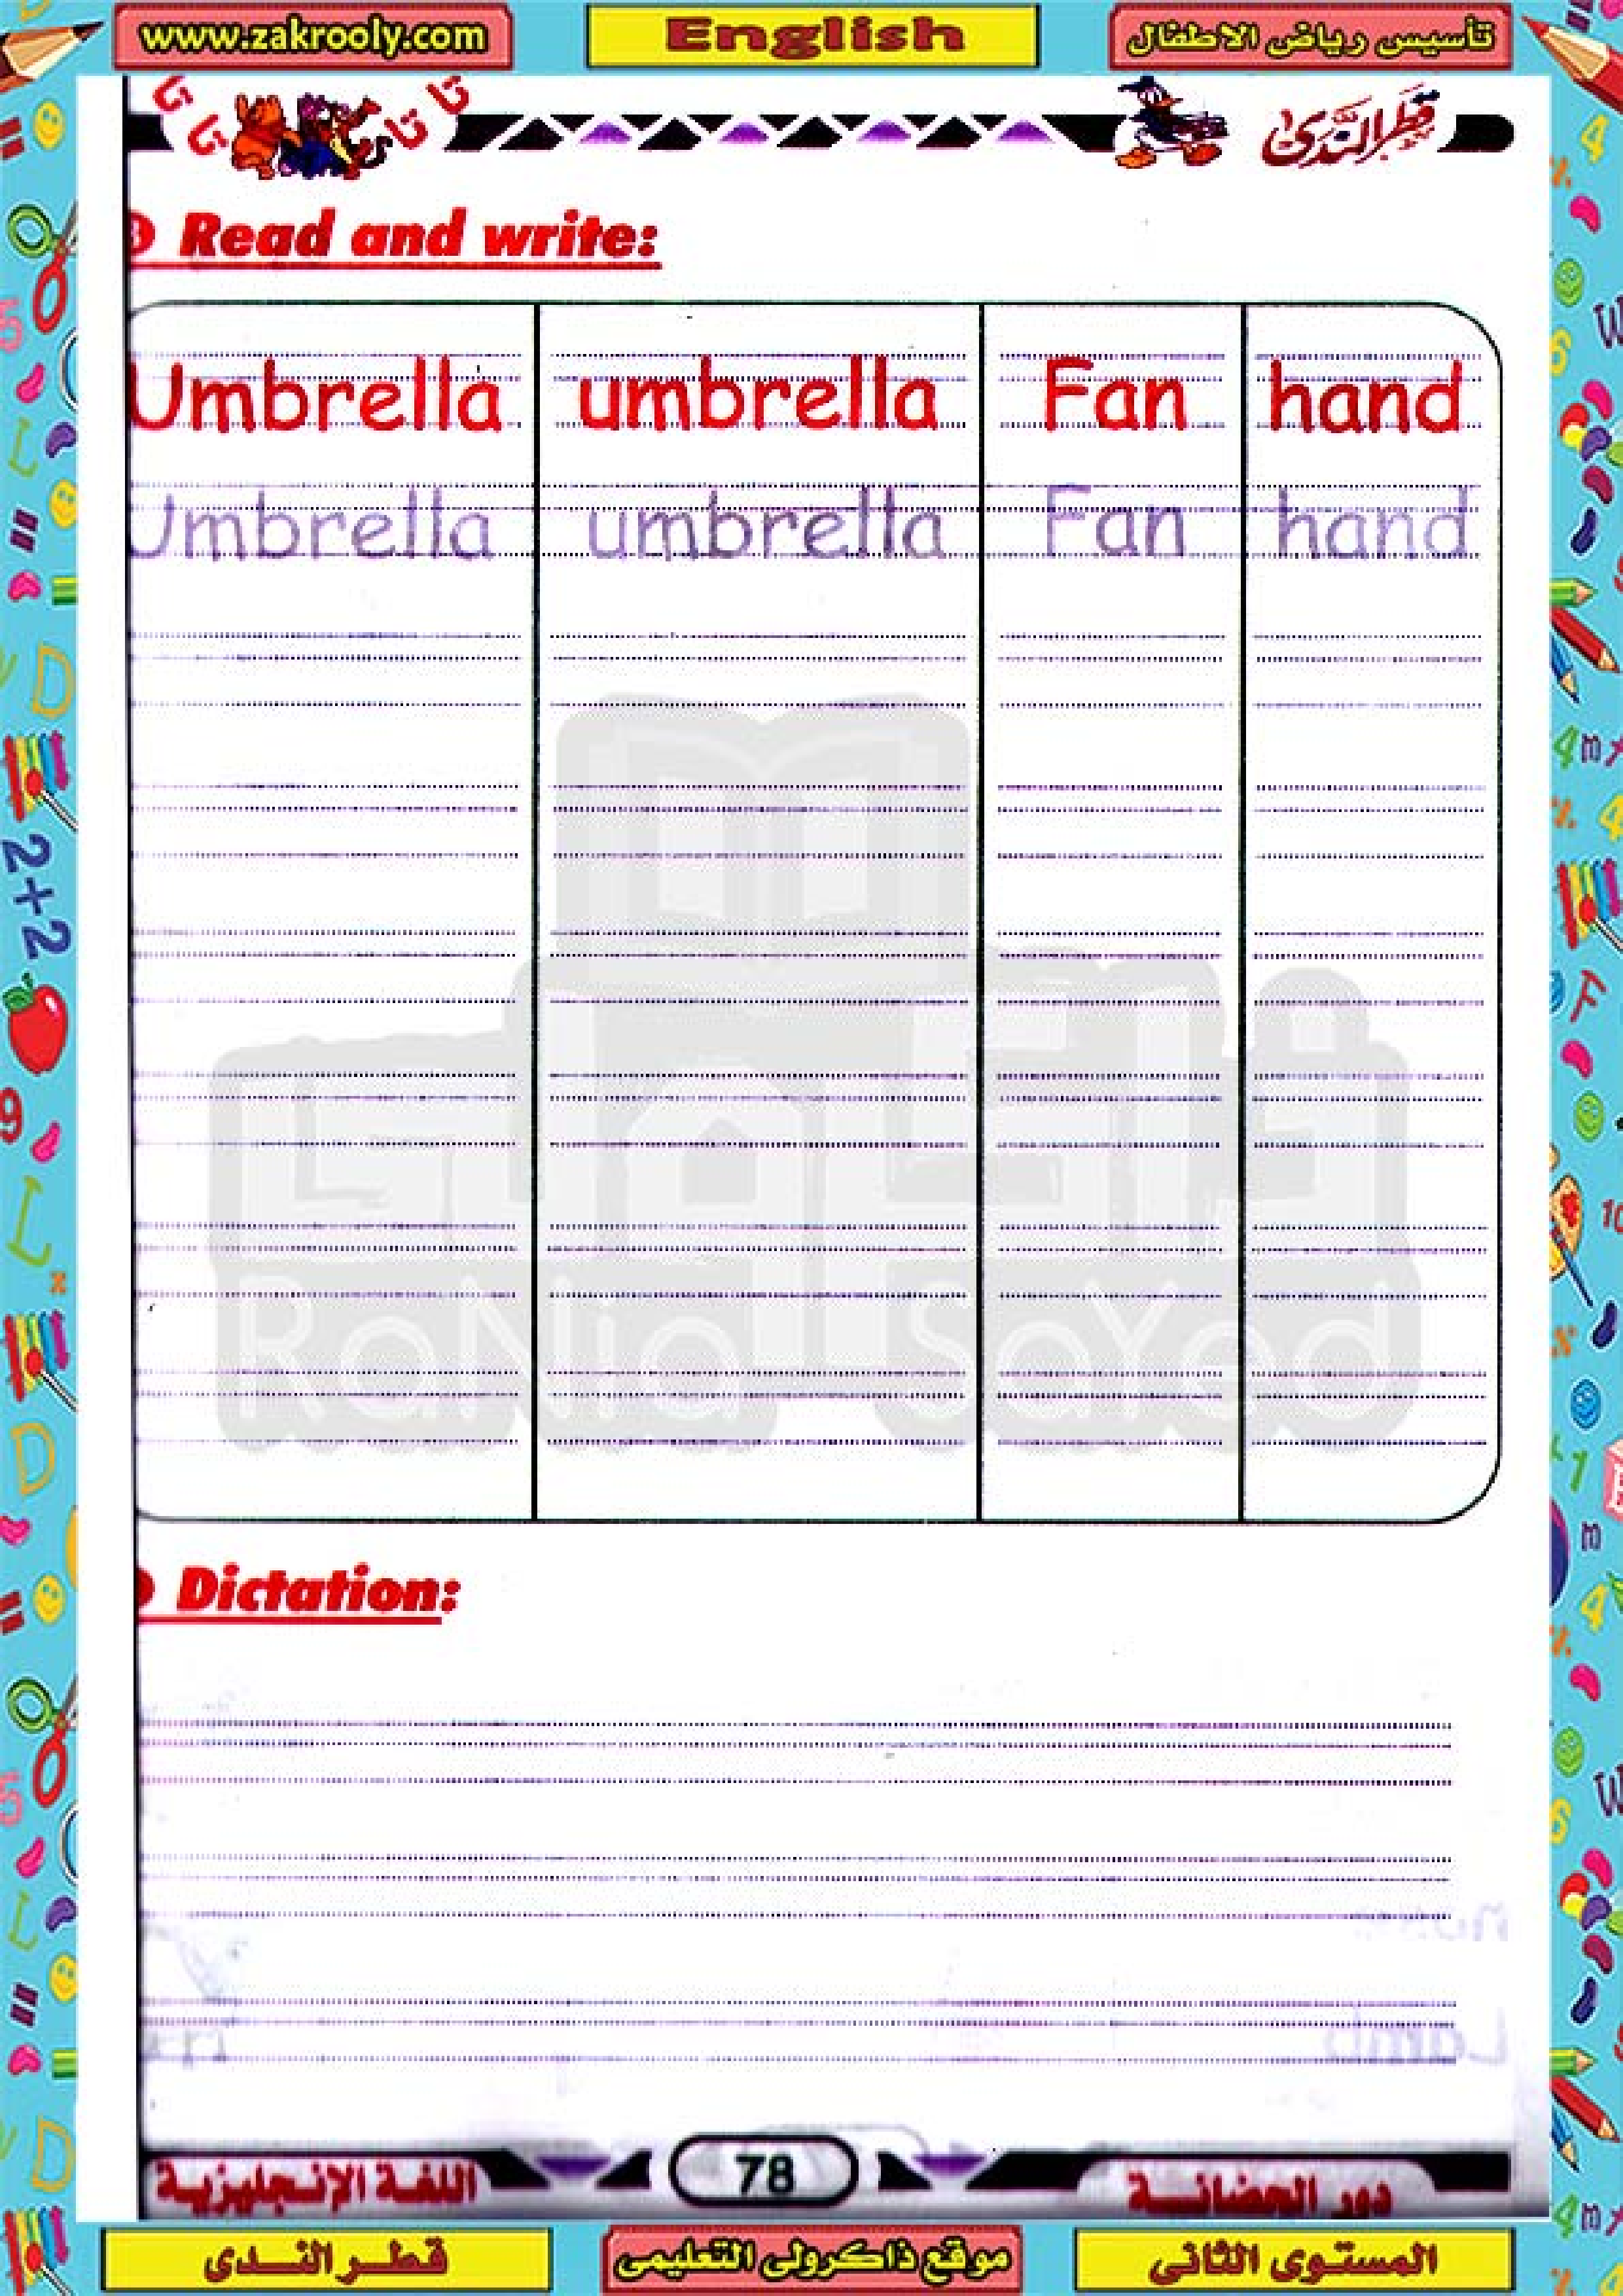 www.zakrooly.com English تأسيس رياض الاطفال
تا تا تا تا قطر الندى
Read and write:
Umbrella umbrella Fan hand
Umbrella umbrella Fan hand
RaNia SaYed
Dictation:
Lamb
اللغة الإنجليزية 78 دور الحضانة
قطر الندى موقع ذاكرولى التعليمى المستوى الثانى